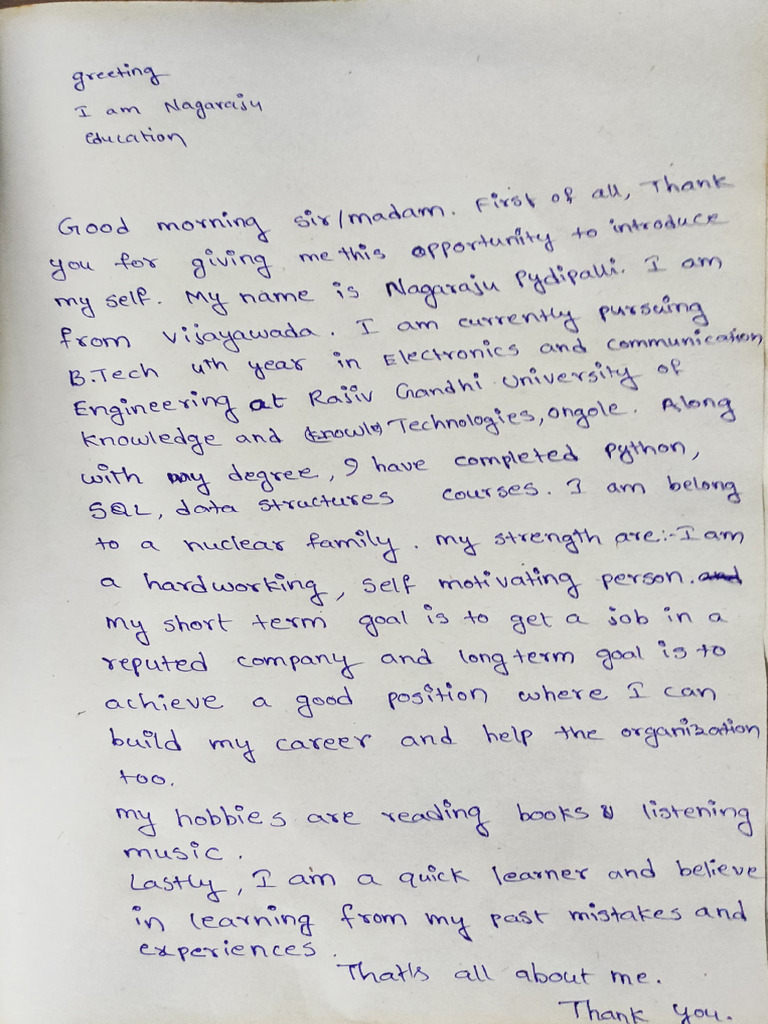 greeting
I am Nagaraju
Education
Good morning sir/madam. First of all, Thank
you for giving me this opportunity to introduce
my self. My name is Nagaraju Pydipalli. I am
from Vijayawada. I am currently pursuing
B.Tech 4th year in Electronics and communication
Engineering at Rajiv Gandhi University of
Knowledge and Technologies, ongole. Along
with my degree, I have completed python,
SQL, data structures courses. I am belong
to a nuclear family. my strength are:- I am
a hardworking, self motivating person.
my short term goal is to get a job in a
reputed company and long term goal is to
achieve a good position where I can
build my career and help the organization
too.
my hobbies are reading books & listening
music.
Lastly, I am a quick learner and believe
in learning from my past mistakes and
experiences.
That's all about me.
Thank you.